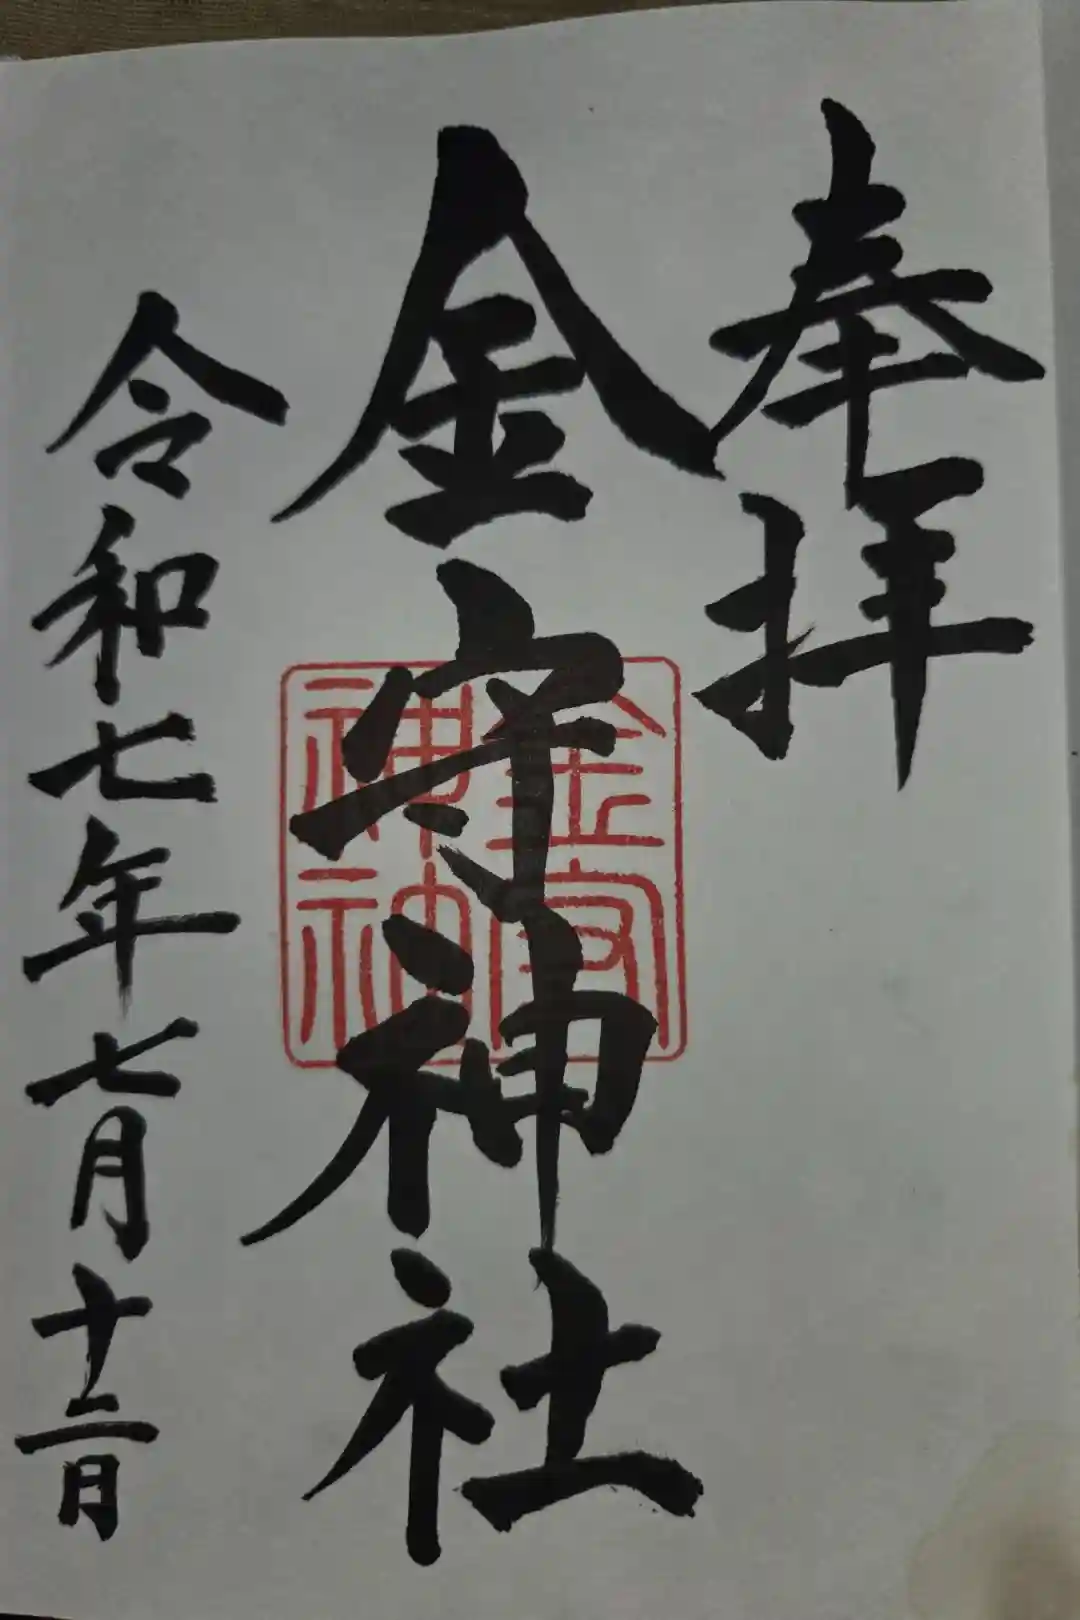 奉拝
金守神社
金守
神社
令和七年七月十二日